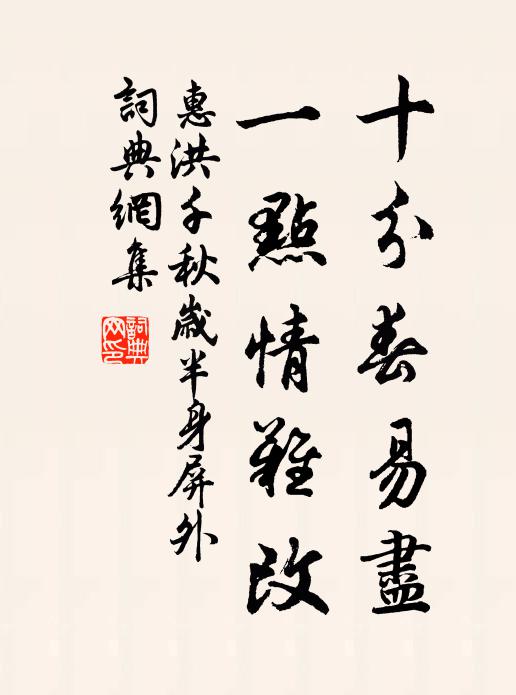 十分春易盡
一點情難改
惠洪千秋歲半身屏外
詞典網集
詞典网印